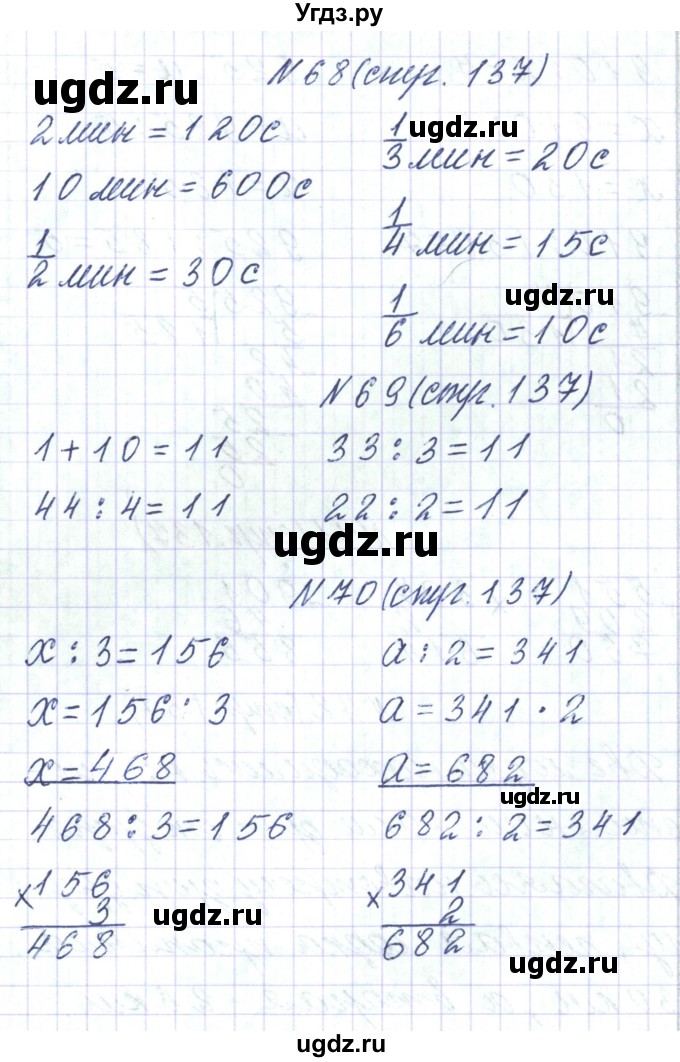 Угдз.ру
№68(стр. 137)
ugdz.ru
2 мин = 120с
10 мин = 600с
1/2 мин = 30с
ugdz.ru
1/3 мин = 20с
1/4 мин = 15с
ugdz.ru
1/6 мин = 10с
№69(стр. 137)
1 + 10 = 11
33 : 3 = 11
44 : 4 = 11
22 : 2 = 11
ugdz.ru
№70(стр. 137)
x : 3 = 156
x = 156 · 3
x = 468
468 : 3 = 156
× 156
3
468
a : 2 = 341
a = 341 · 2
a = 682
ugdz.ru
682 : 2 = 341
× 341
2
682
ugdz.ru
ugdz.ru